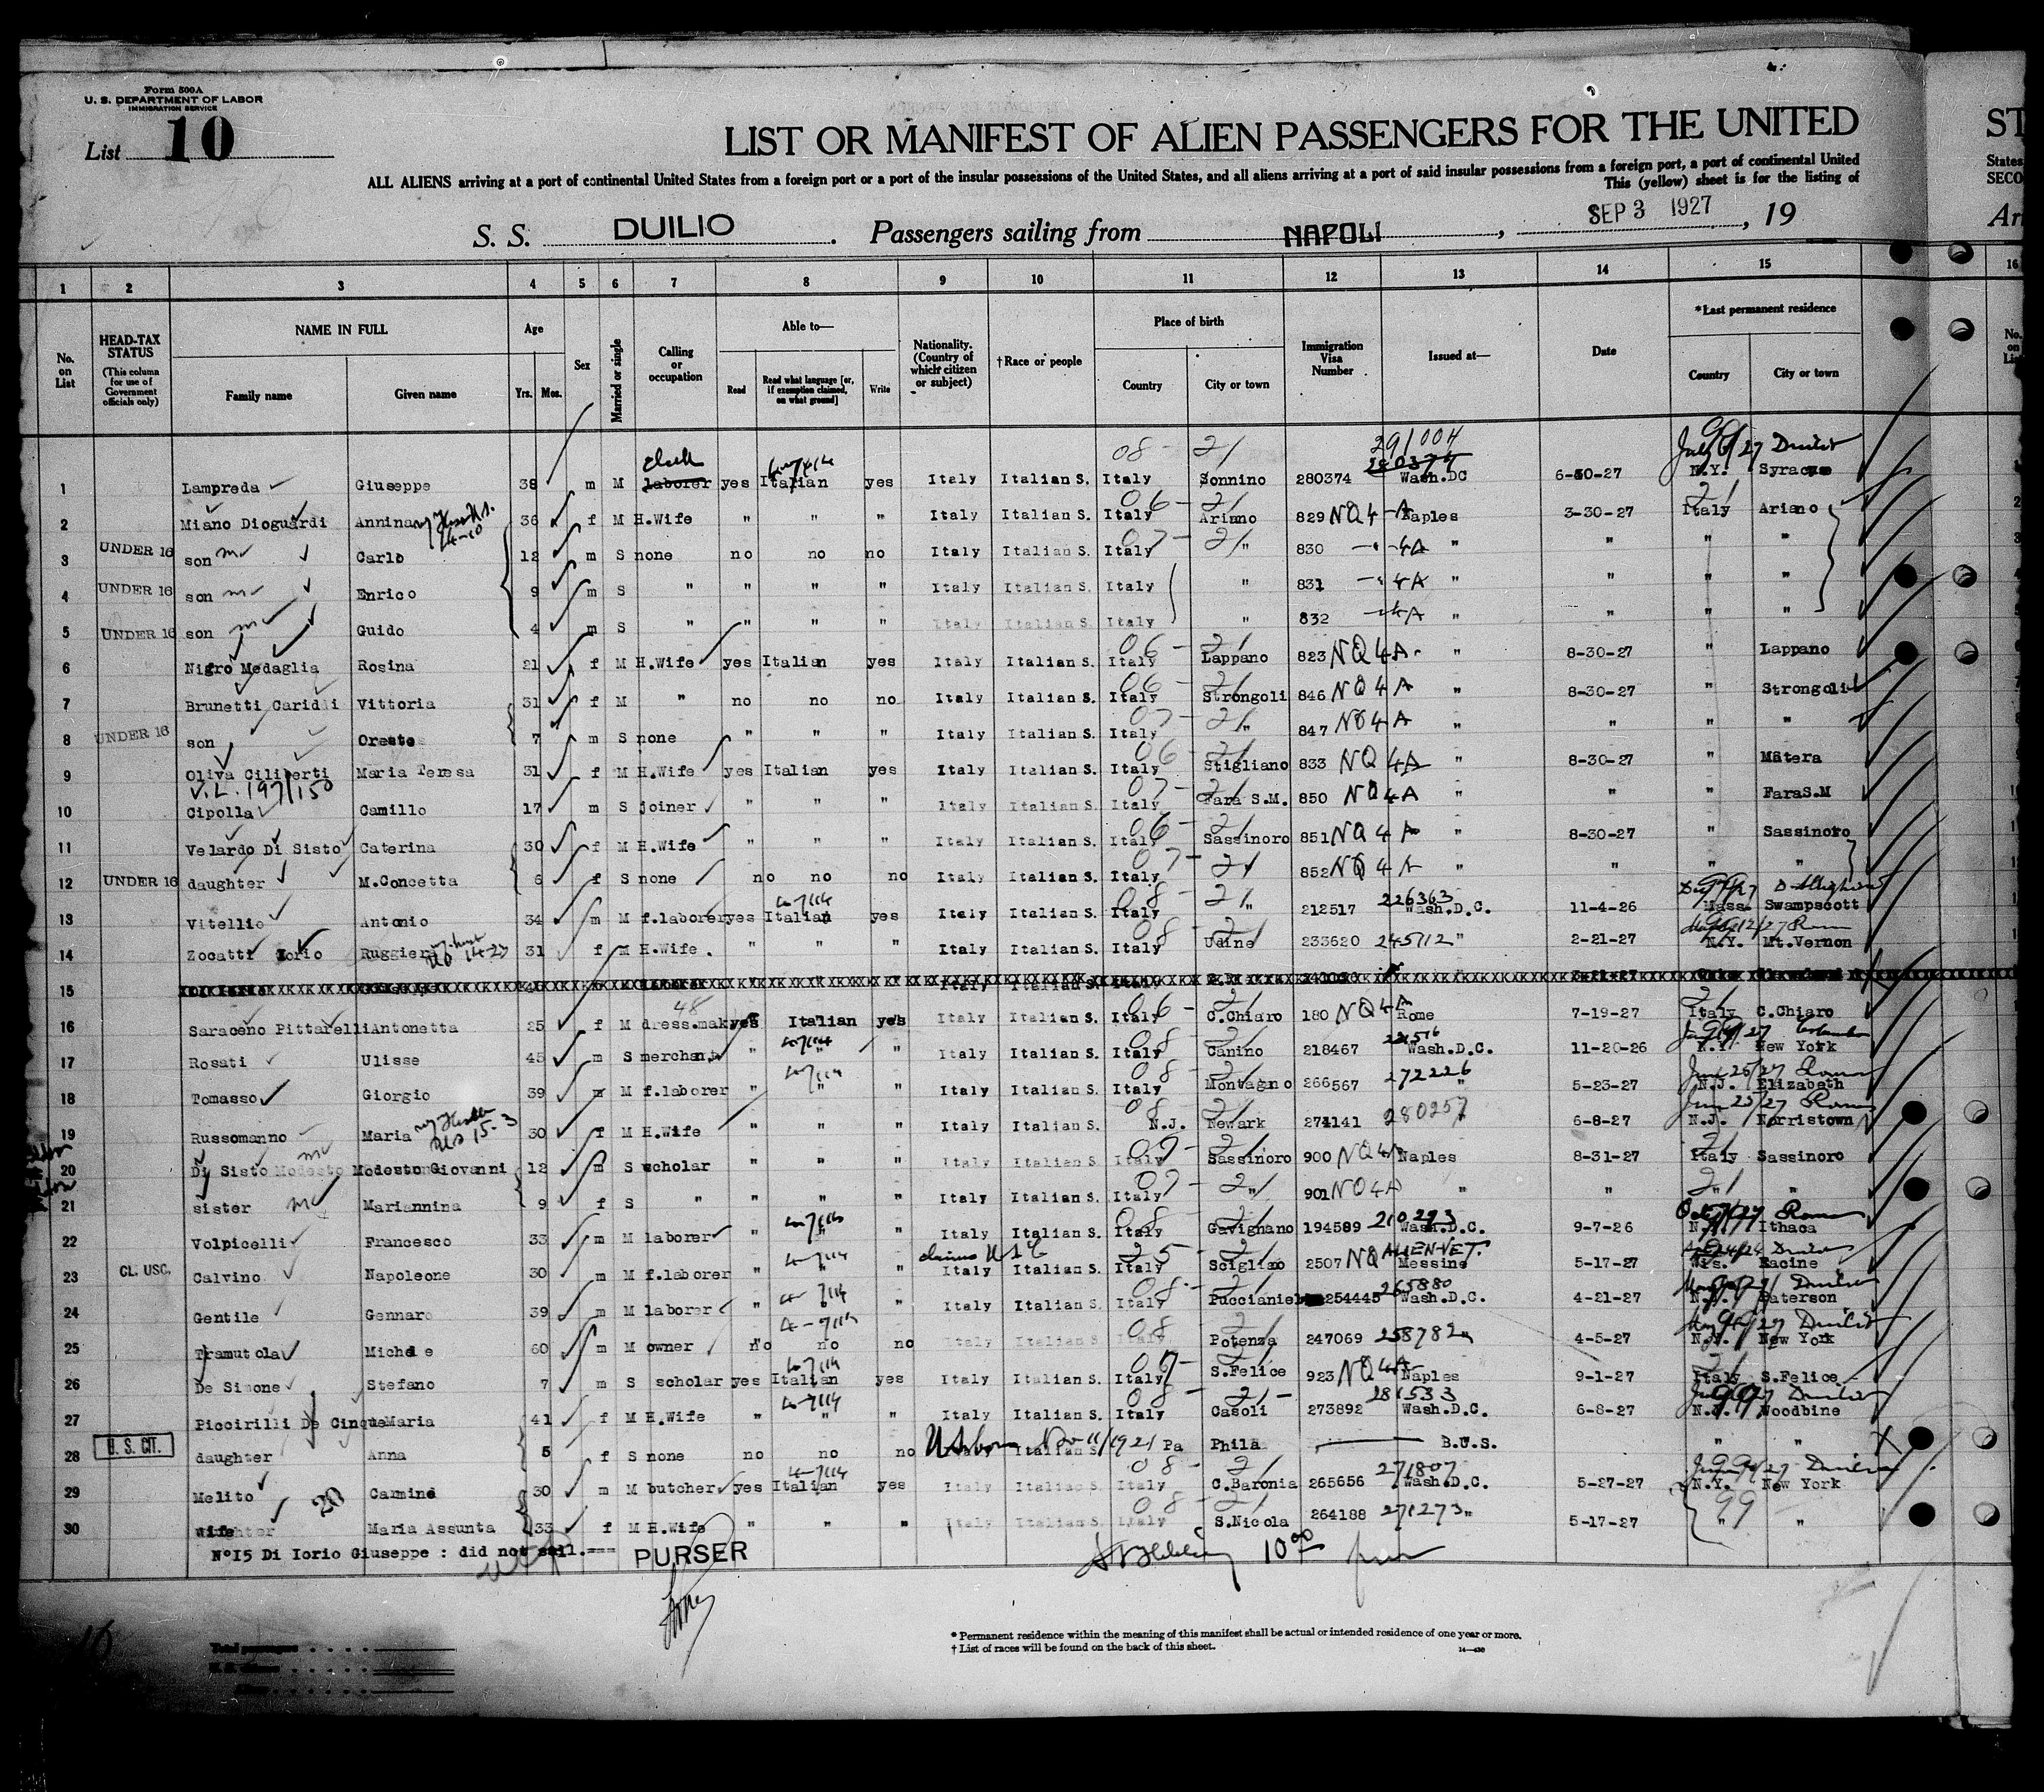 Form 500A
U. S. DEPARTMENT OF LABOR
IMMIGRATION SERVICE
List 10
LIST OR MANIFEST OF ALIEN PASSENGERS FOR THE UNITED ST
ALL ALIENS arriving at a port of continental United States from a foreign port or a part of the insular possessions of the United States, and all aliens arriving at a port of said insular possessions from a foreign port, a part of continental United States
This (yellow) sheet is for the listing of SECO
S. S. DUILIO . Passengers sailing from NAPOLI , SEP 3 1927 , 19 Arr
1 2 3 4 5 6 7 8 9 10 11 12 13 14 15 16
No. on List
HEAD-TAX STATUS (This column for use of Government officials only)
NAME IN FULL Family name Given name
Age Yrs. Mos.
Sex
Married or single
Calling or occupation
Able to— Read Read what language [or, if exemption claimed, on what ground] Write
Nationality. (Country of which citizen or subject)
†Race or people
Place of birth Country City or town
Immigration Visa Number
Issued at—
Date
*Last permanent residence Country City or town
No. on List
1 Lampreda Giuseppe 38 m M clerk laborer yes Italian yes Italy Italian S. Italy Sonnino 280374 291004 280374 Wash.DC 6-30-27 N.Y. Syracuse
2 Miano Dioguardi Annina 36 f M H.Wife " " " Italy Italian S. Italy Ariano 829 NQ4-A Naples 3-30-27 Italy Ariano
3 UNDER 16 son Carlo 12 m S none no no no Italy Italian S. Italy " 830 4A " " " "
4 UNDER 16 son Enrico 9 m S " " " " Italy Italian S. Italy " 831 4A " " " "
5 UNDER 16 son Guido 4 m S " " " " Italy Italian S. Italy " 832 4A " " " "
6 Nigro Medaglia Rosina 21 f M H.Wife yes Italian yes Italy Italian S. Italy Lappano 823 NQ4A " 8-30-27 " Lappano
7 Brunetti Caridi Vittoria 31 f M " no no no Italy Italian S. Italy Strongoli 846 NQ4A " 8-30-27 " Strongoli
8 UNDER 16 son Oreste 7 m S none " " " Italy Italian S. Italy " 847 NQ4A " " " "
9 Oliva Ciliberti Maria Teresa 31 f M H.Wife yes Italian yes Italy Italian S. Italy Stigliano 833 NQ4A " 8-30-27 " Matera
V.L. 197/150
10 Cipolla Camillo 17 m S joiner " " " Italy Italian S. Italy Fara S.M. 850 NQ4A " " " FaraS.M
11 Velardo Di Sisto Caterina 30 f M H.Wife " " " Italy Italian S. Italy Sassinoro 851 NQ4A " 8-30-27 " Sassinoro
12 UNDER 16 daughter M.Concetta 6 f S none no no no Italy Italian S. Italy " 852 NQ4A " " " "
13 Vitellio Antonio 34 m M f.laborer yes Italian yes Italy Italian S. Italy " 212517 226363 Wash.D.C. 11-4-26 Mass. Swampscott
14 Zocatti Iorio Ruggiera 31 f M H.Wife " " " Italy Italian S. Italy Udine 233620 245112 " 2-21-27 N.Y. Mt.Vernon
15
16 Saraceno Pittarelli Antonetta 25 f M dress.mak yes Italian yes Italy Italian S. Italy C.Chiaro 180 NQ4A Rome 7-19-27 Italy C.Chiaro
17 Rosati Ulisse 45 m S merchan. " " " Italy Italian S. Italy Canino 218467 Wash.D.C. 11-20-26 N.Y. New York
18 Tomasso Giorgio 39 m M f.laborer " " " Italy Italian S. Italy Montagno 266567 272226 " 5-23-27 N.J. Elizabeth
19 Russomanno Maria 30 f M H.Wife " " " Italy Italian S. N.J. Newark 274141 280257 6-8-27 N.J. Morristown
20 Di Sisto Modesto Modesto Giovanni 12 m S scholar " " " Italy Italian S. Italy Sassinoro 900 NQ4A Naples 8-31-27 Italy Sassinoro
21 sister Mariannina 9 f S " " " " Italy Italian S. Italy " 901 NQ4A " " " "
22 Volpicelli Francesco 33 m M laborer " " " Italy Italian S. Italy Gavignano 194589 210293 Wash.D.C. 9-7-26 N.Y. Ithaca
23 CL. USC. Calvino Napoleone 30 m M f.laborer " " " claims USC Italy Italian S. Italy Scigliao 2507 NQ ALIEN-VET. Messine 5-17-27 Wis. Racine
24 Gentile Gennaro 39 m M laborer " " " Italy Italian S. Italy Puccianie 254445 265880 Wash.D.C. 4-21-27 N.J. Paterson
25 Tramutola Michele 60 m M owner no no no Italy Italian S. Italy Potenza 247069 258782 " 4-5-27 N.Y. New York
26 De Simone Stefano 7 m S scholar yes Italian yes Italy Italian S. Italy S.Felice 923 NQ4A Naples 9-1-27 Italy S.Felice
27 Piccirilli De Cinque Maria 41 f M H.Wife " " " Italy Italian S. Italy Casoli 273892 281533 Wash.D.C. 6-8-27 N.J. Woodbine
28 U. S. CIT. daughter Anna 5 f S none no no no US born Italian S. Nov 11/1921 Pa Phila B.U.S. " "
29 Melito Carmine 30 m M butcher yes Italian yes Italy Italian S. Italy C.Baronia 265656 271807 Wash.D.C. 5-27-27 N.Y. New York
30 wife Maria Assunta 33 f M H.Wife " " " Italy Italian S. Italy S.Nicola 264188 271273 " 5-17-27 " "
N°15 Di Iorio Giuseppe : did not sail.===
PURSER
* Permanent residence within the meaning of this manifest shall be actual or intended residence of one year or more.
† List of races will be found on the back of this sheet.
14—430
Total passengers